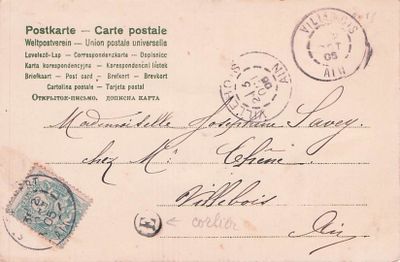 Postkarte — Carte postale
Weltpostverein – Union postale universelle
Levelező-Lap – Correspondenzkarte – Dopisnice
Karta korespondencyjna – Korespondenční lístek
Briefkaart – Post card – Brefkort – Brevkort
Cartolina postale – Tarjeta postal
Открытое письмо. дописна карта
VILLEBOIS
05
AIN
VILLEBOIS
AIN
Mademoiselle Joséphine Savey
chez Mr Chêne
Villebois
Ain
E
corlier
05